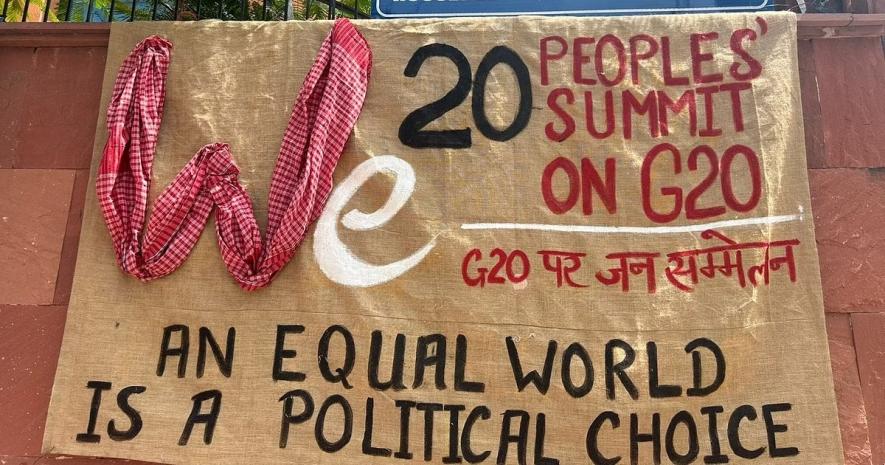 We 20 PEOPLES'
SUMMIT
ON G20
G20 पर जन सम्मेलन
AN EQUAL WORLD
IS A POLITICAL CHOICE